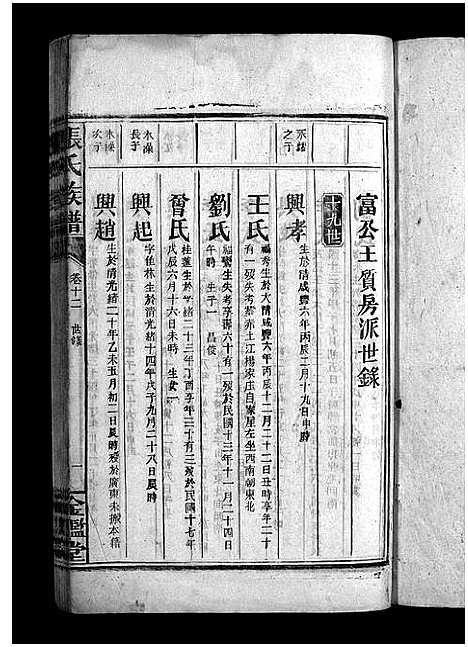 富公王質房派世錄
十九世
永結之子
興孝
生於清咸豐六年丙辰二月十九日申時
王氏
福秀生於大清咸豐六年丙辰十二月二十二日丑時享年二十
有一歿失考葬赤土江楊家庄自家屋左坐西南朝東北
劉氏
福鸞生失考享壽六十有一歿於民國十三年十一月二十四日
午時 生子一 昌俊
永濚長子
興起
字佳林生於清光緒十四年戊子九月二十八日辰時
曾氏
桂蓮生於光緒二十三年丁酉享年三十有三歿於民國十七年
戊辰六月十六日未時 生女一
永濚次子
興趙
生於清光緒二十年乙未五月初二日辰時歿於廣東未搬本籍
張氏族譜
卷十二 世錄
一
金鑑堂